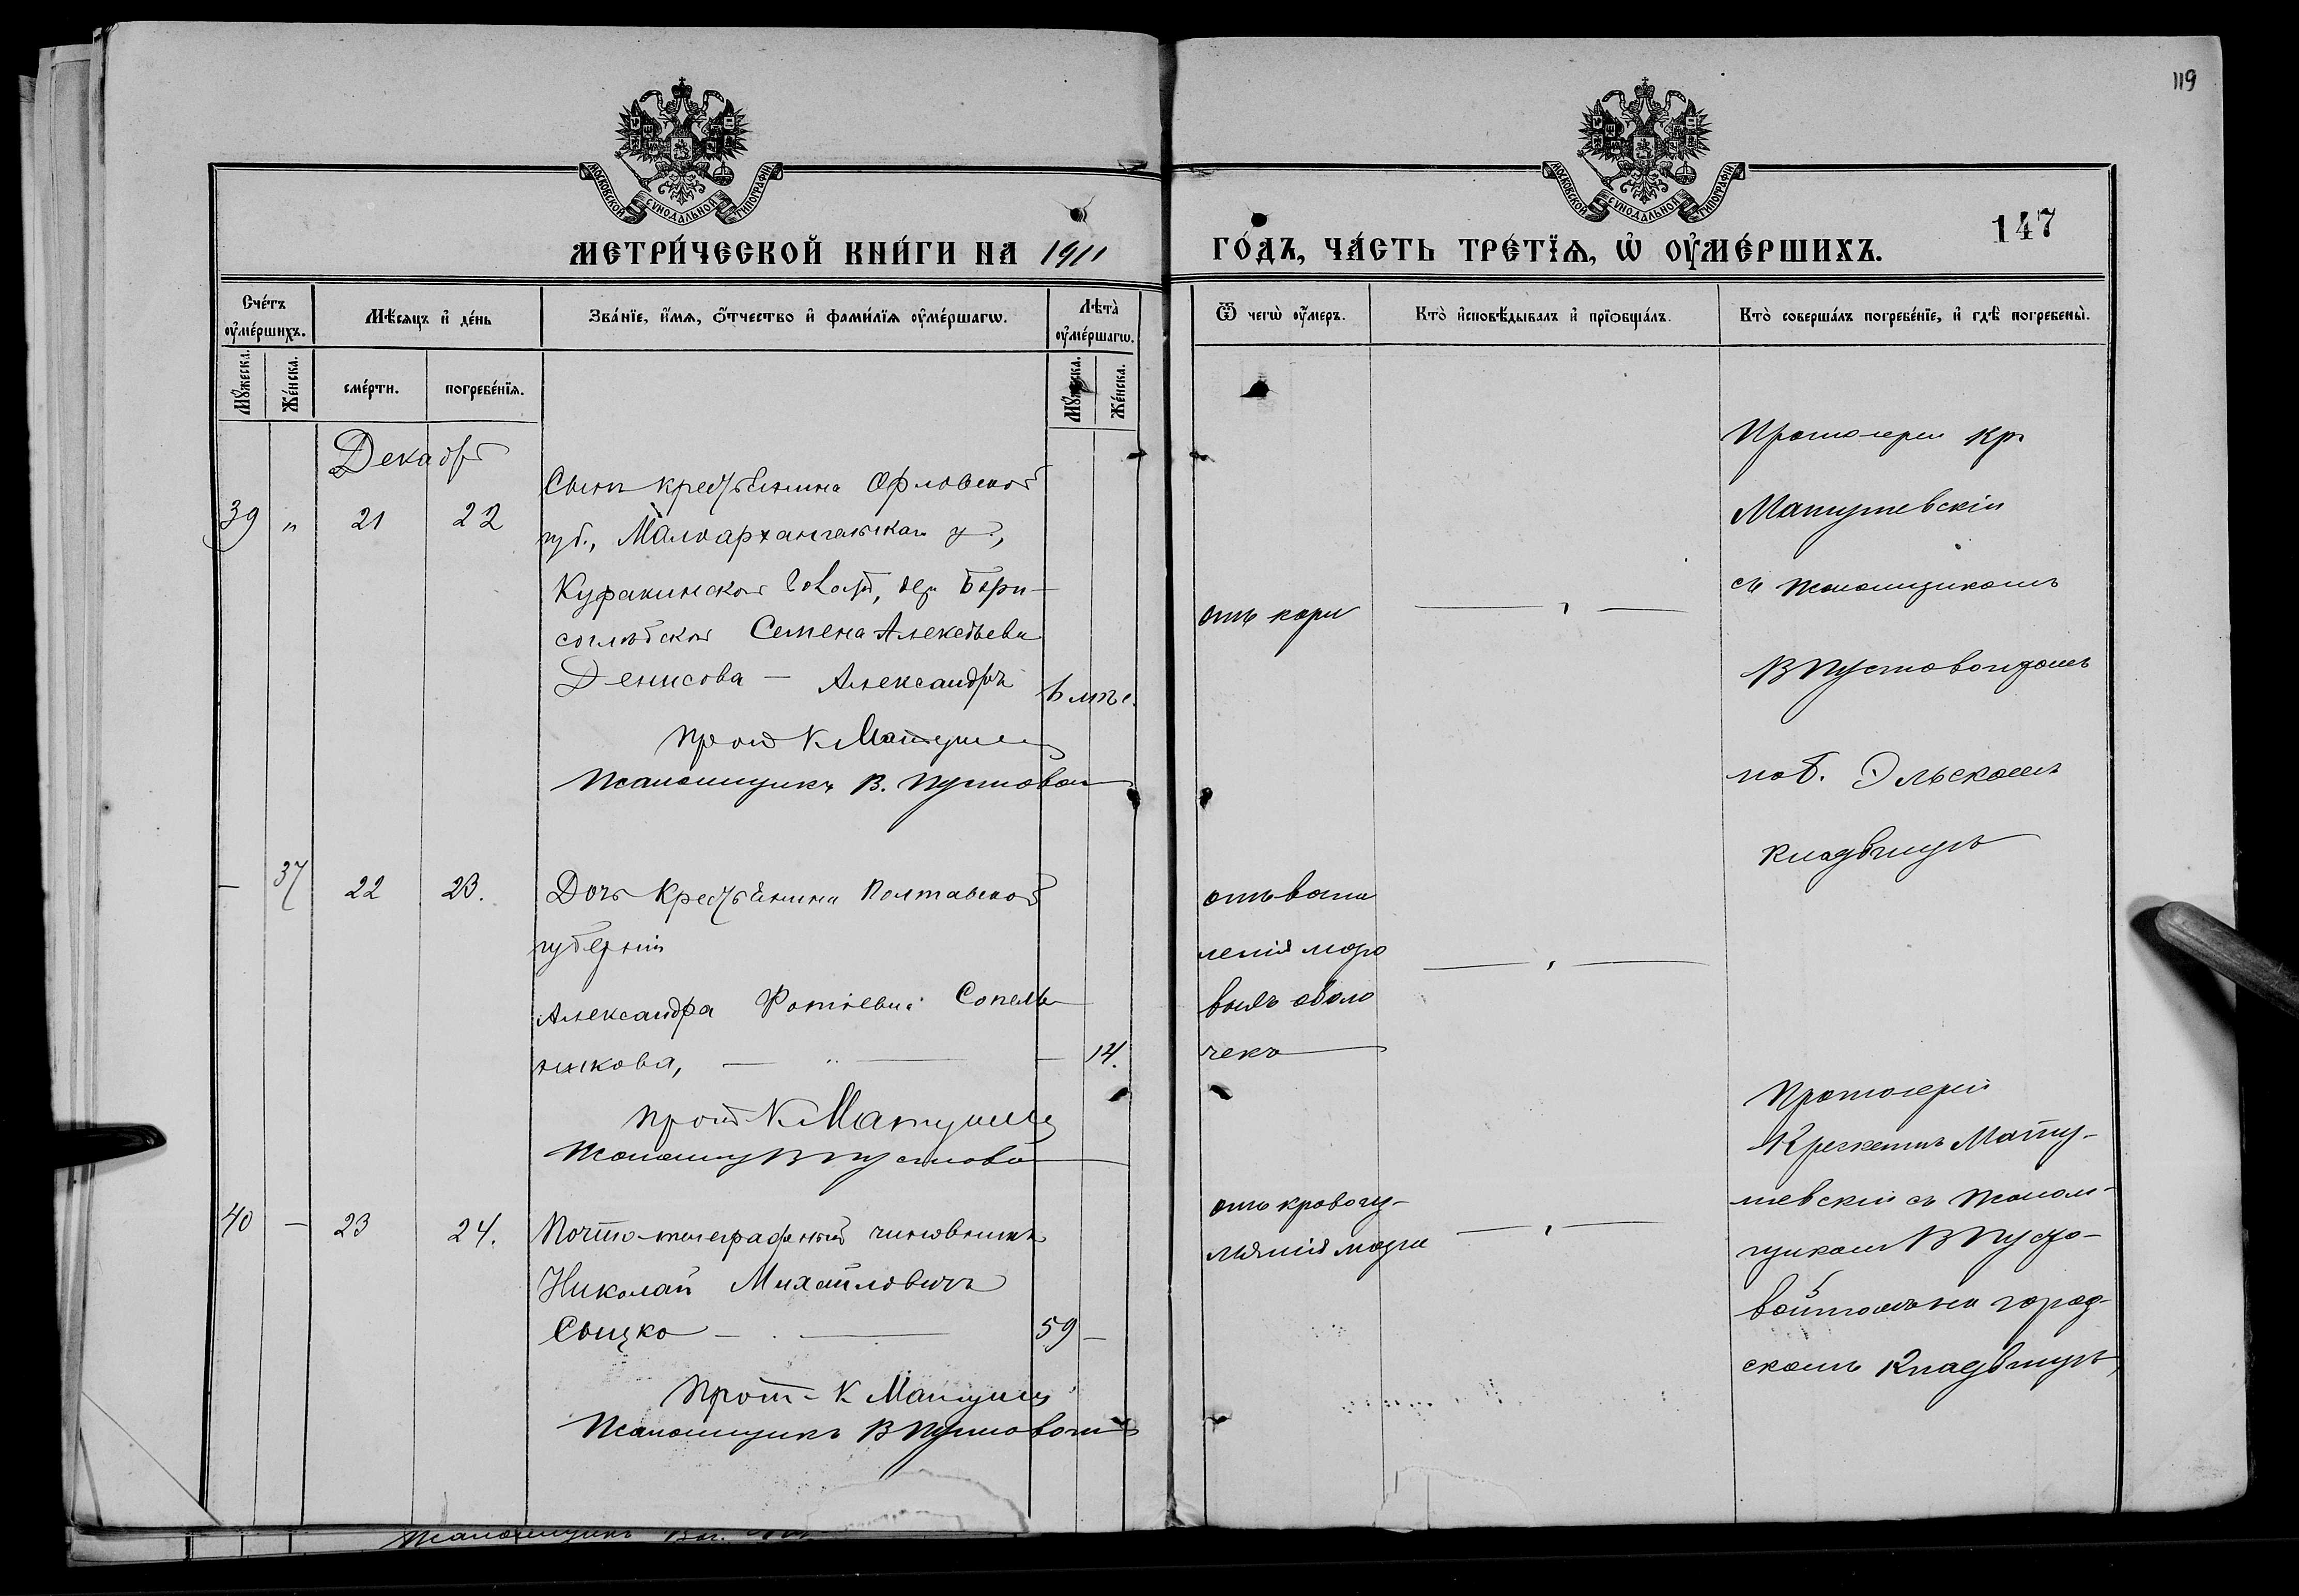 119
МОСКОВСКОЙ СѴНОДАЛЬНОЙ ТИПОГРАФІИ
МОСКОВСКОЙ СѴНОДАЛЬНОЙ ТИПОГРАФІИ
147
МЕТРИ́ЧЕСКОЙ КНИ́ГИ НА 1911
ГО́ДЪ, ЧА́СТЬ ТРЕ́ТЇѦ, Ѡ҆ ОУ҆МЕ́РШИХЪ.
Сче́тъ оу҆ме́ршихъ.
Мꙋ́жеска.
Же́нска.
Мѣ́сяцъ и҆ де́нь
сме́рти.
погребе́нїѧ.
Зва́нїе, и҆́мѧ, ѻ҆́тчество и҆ фами́лїѧ оу҆ме́ршагѡ.
Лѣ̑та оу҆ме́ршагѡ.
Мꙋ́жеска.
Же́нска.
Ѿ чегѡ̀ оу҆́меръ.
Кто̀ и҆сповѣ́дывалъ и҆ прїѻбща́лъ.
Кто̀ соверша́лъ погребе́нїе, и҆ гдѣ̀ погребены̀.
Декабрь
39 „ 21 22
Сынъ крестьянина Орловской
губ., Малоархангельскаго у.,
Куракинской волости, дер. Бори-
соглѣбской Семена Алексѣева
Денисова — Александръ
6 мѣс.
отъ кори
Протоіерей Кр.
Матушевскій
съ псаломщикомъ
В Пустовойтомъ
на б. Эльскомъ
кладбищѣ
Прот К Матушев
Псаломщикъ В. Пустовой
— 37 22 23.
Дочь крестьянина Полтавской
губерніи
Александра Фотіевича Сопель-
никова, — „ — — 14.
отъ воспа
ленія мозго
выхъ оболо
чекъ
Прот К Матушев
Псаломщ В Пустово
40 — 23 24.
Почтово-телеграфный чиновникъ
Николай Михайловичъ
Сыцко — 59 —
отъ кровоиз-
ліянія мозга
Протоіерей
Крискентъ Матту-
шевскій съ псалом-
щикомъ В Пусто-
войтомъ на город-
скомъ кладбищѣ
Прот- К Матушев
Псаломщикъ В Пустовойт
Псаломщикъ